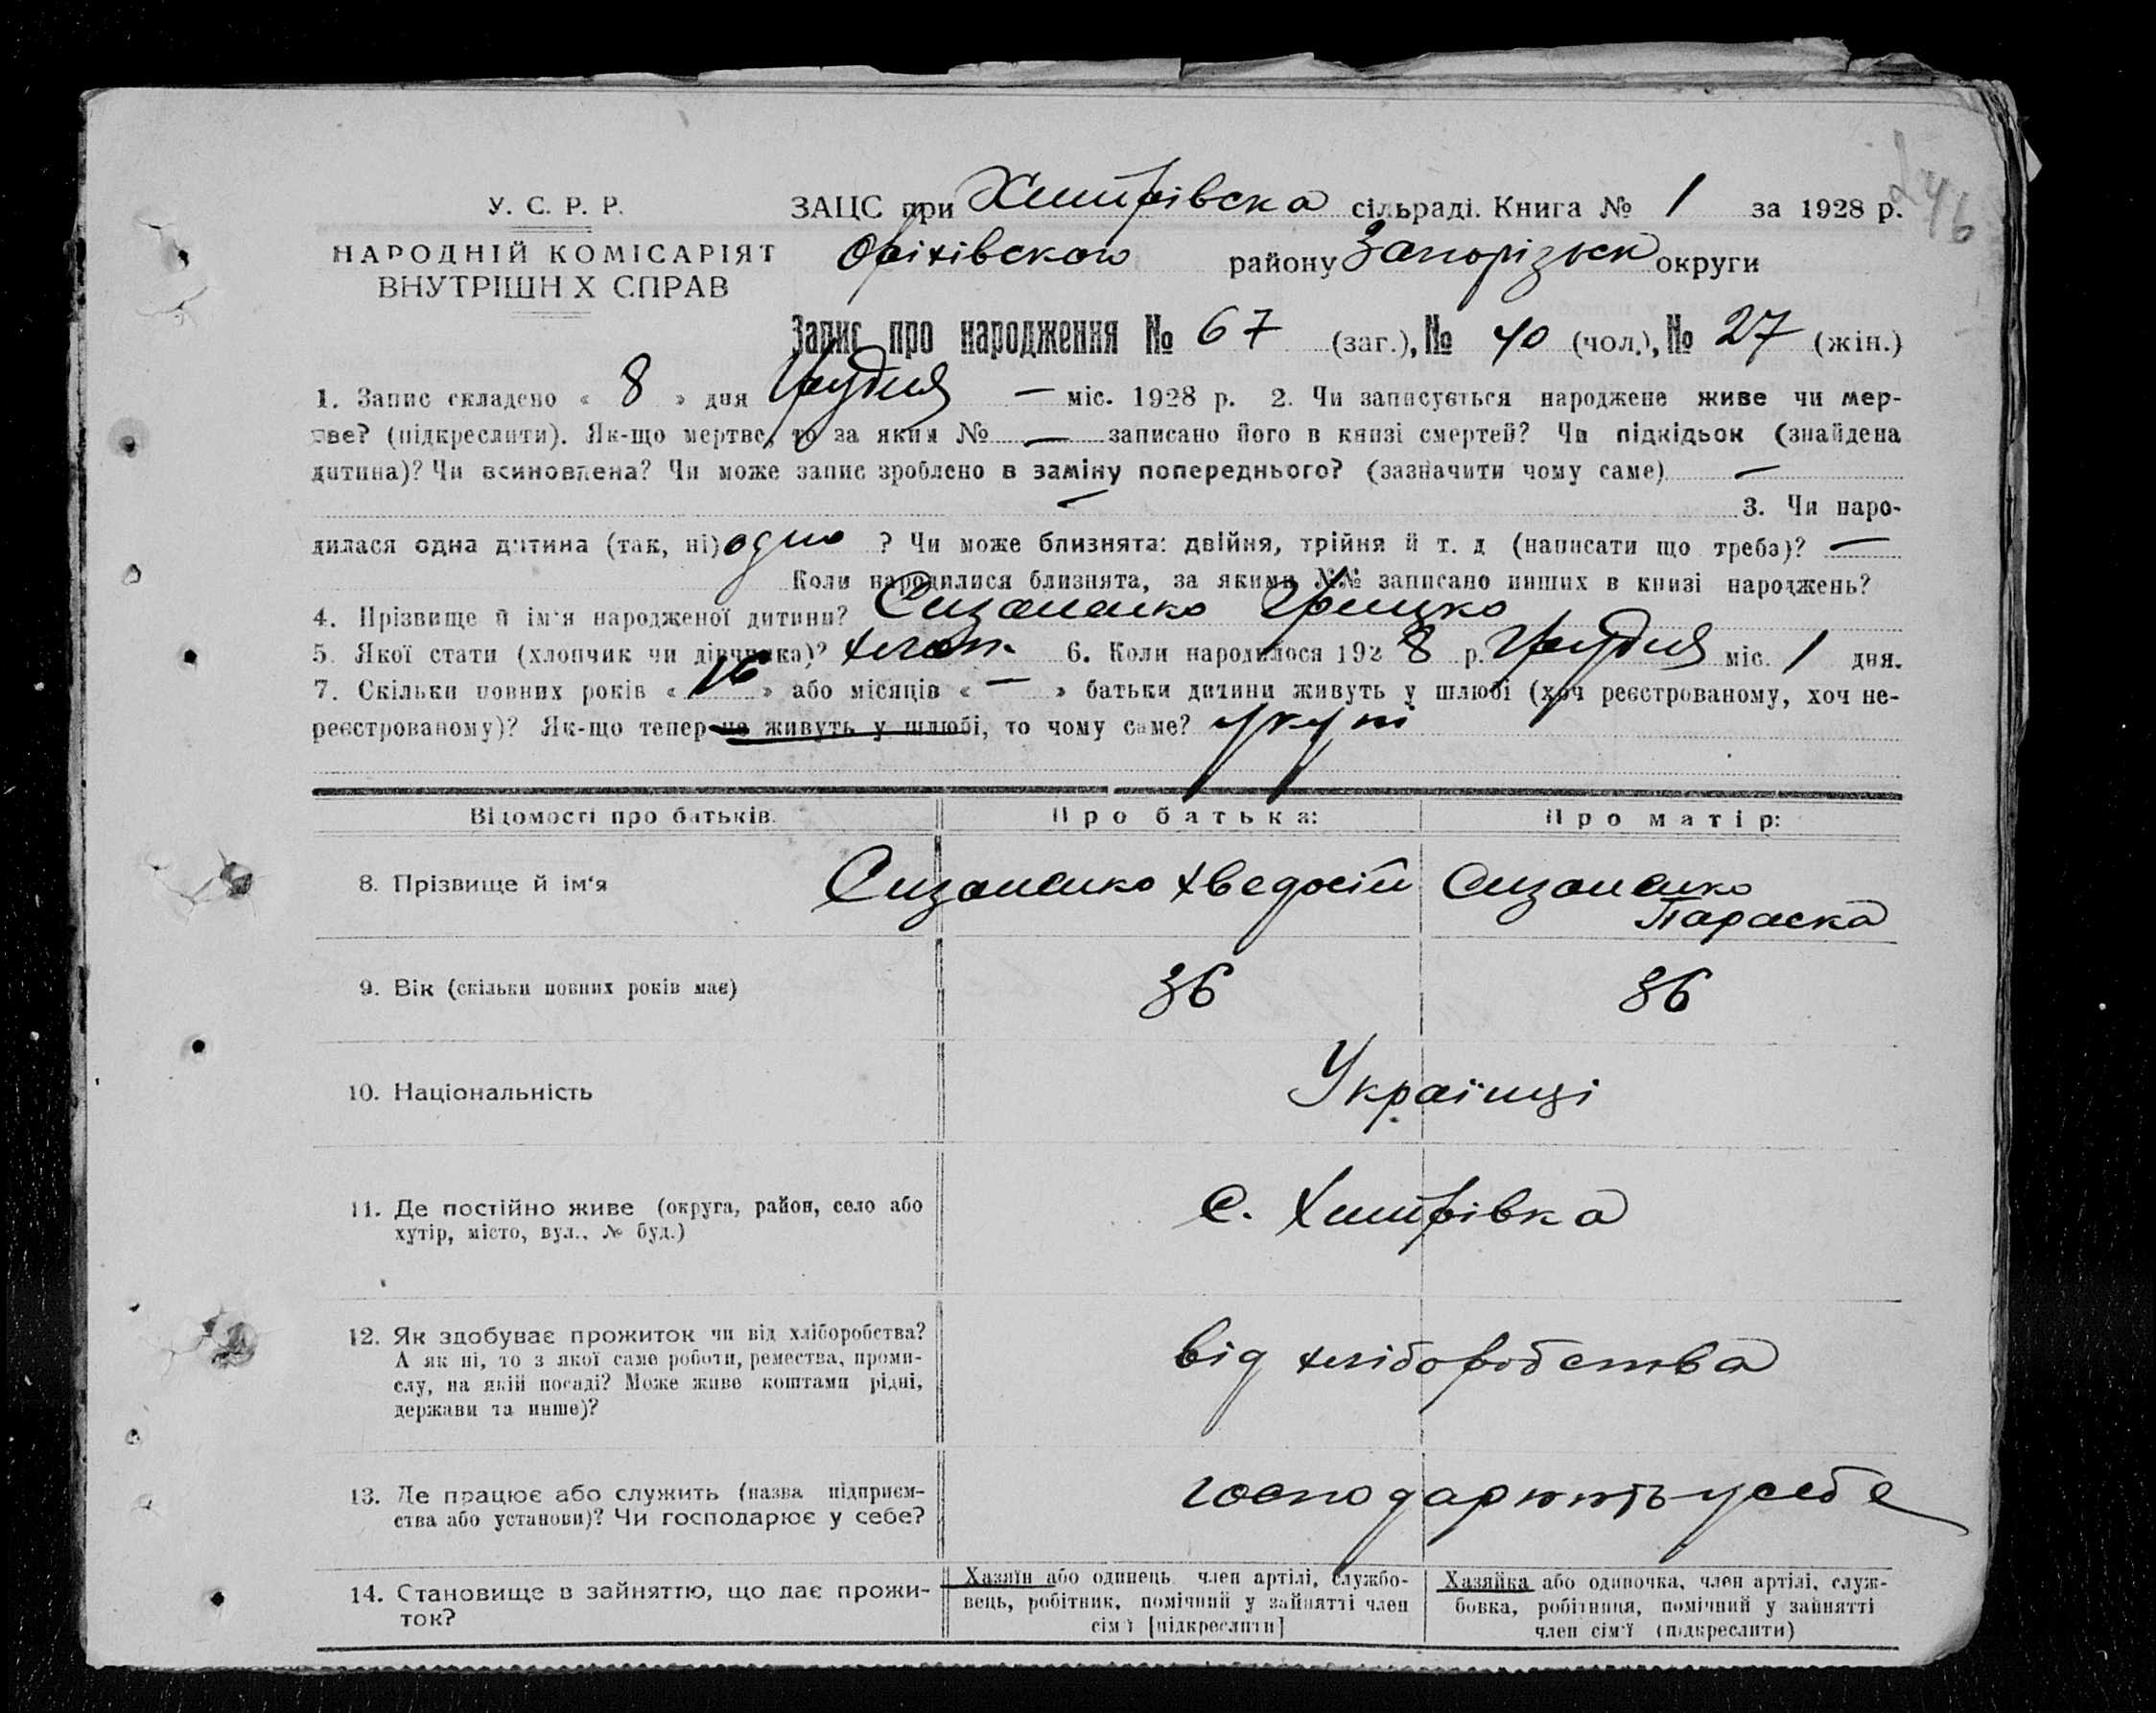 246
У. С. Р. Р.
НАРОДНІЙ КОМІСАРІЯТ
ВНУТРІШН Х СПРАВ
ЗАЦС при Хитрівска сільраді. Книга № 1 за 1928 р.
Оріхівскою району Запорізьк округи
Запис про народження № 67 (заг.), № 40 (чол.), № 27 (жін.)
1. Запис складено « 8 » дня Грудня — міс. 1928 р. 2. Чи записується народжене живе чи мер-
тве? (підкреслити). Як-що мертве, то за яким № — записано його в книзі смертей? Чи підкідьок (знайдена
дитина)? Чи всиновлена? Чи може запис зроблено в заміну попереднього? (зазначити чому саме) —
— 3. Чи наро-
дилася одна дитина (так, ні) одно ? Чи може близнята: двійня, трійня й т. д (написати що треба)? —
Коли народилися близнята, за якими №№ записано инших в книзі народжень?
4. Прізвище й ім'я народженої дитини? Сизоненко Грицко
5. Якої стати (хлопчик чи дівчинка)? хлоп. 6. Коли народилося 1928 р. Грудня міс. 1 дня.
7. Скільки повних років « 16 » або місяців « — » батьки дитини живуть у шлюбі (хоч реєстрованому, хоч не-
реєстрованому)? Як-що тепер не живуть у шлюбі, то чому саме? укупі
Відомості про батьків. Про батька: Про матір:
8. Прізвище й ім'я Сизоненко Хведосій Сизоненко
Параска
9. Вік (скільки повних років має) 36 36
10. Національність Українці
11. Де постійно живе (округа, район, село або
хутір, місто, вул., № буд.)
С. Хитрівка
12. Як здобуває прожиток чи від хліборобства?
А як ні, то з якої саме роботи, ремества, проми-
слу, на якій посаді? Може живе коштами рідні,
держави та инше)?
від хліборобства
13. Де працює або служить (назва підприєм-
ства або установи)? Чи господарює у себе?
господарюють у себе
14. Становище в зайняттю, що дає прожи-
ток?
Хазяїн або одинець член артілі, службо-
вець, робітник, помічний у зайнятті член
сім'ї [підкреслити]
Хазяйка або одиночка, член артілі, служ-
бовка, робітниця, помічний у зайнятті
член сім'ї (підкреслити)